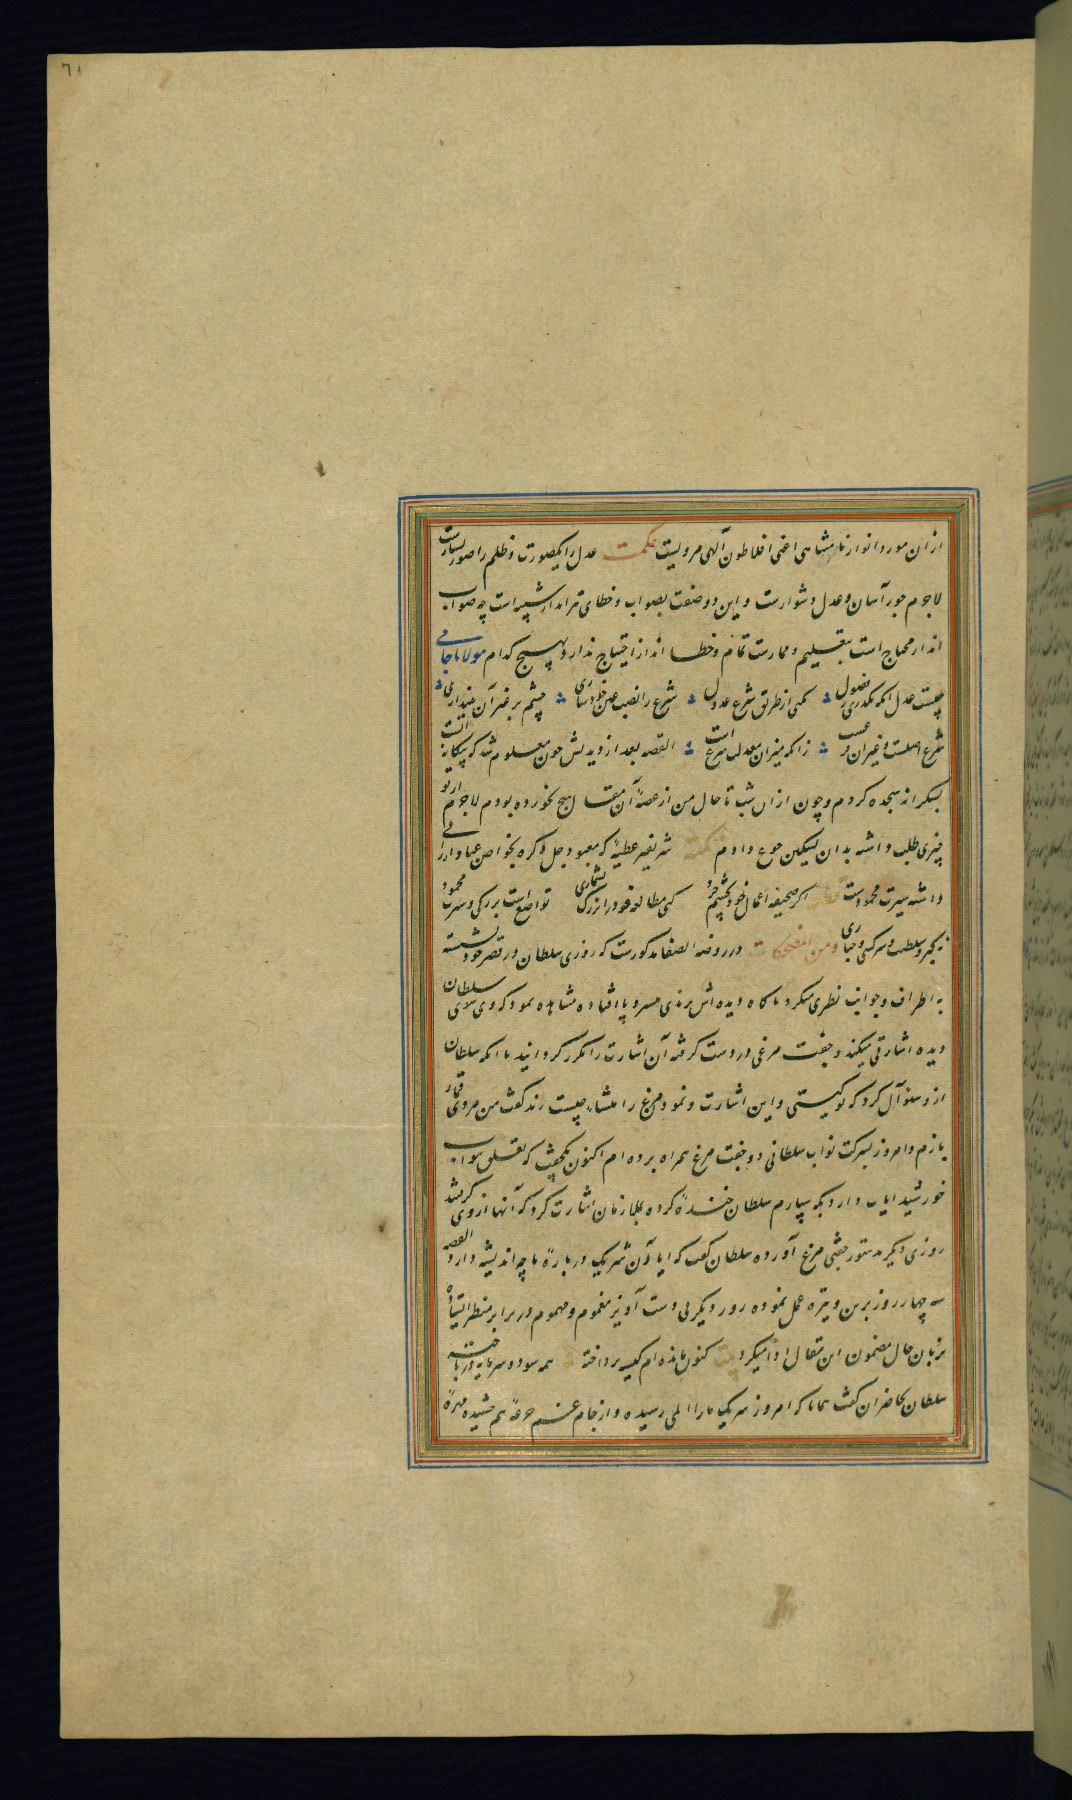 ٦١
ازان مورد انوار نامتناهی اعنی افلاطون آلهی مرویست حکمت عدل را یکصورت و ظلم را صور بسیارست
لاجرم جور آسان و عدل دشوارست و این دو صفت بصواب و خطای تیر انداز شبیه است چه صواب
انداز محتاج است بتعلیم و ممارست تمام و خطا انداز احتیاج ندارد بهیچ کدام مولانا جامی
چیست عدل آنکه نگذری ز فضول نکنی از طریق شرع عدول شرع را نصب عین خود سازی چشم بر غیر آن نیندازی
شرع اصلست و غیر آن فرعست زانکه میزان معدلت شرع است القصه بعد از دیدنش چون معلوم شد که بیگانه است
بشکرانه سجده کردم و چون ازان شب تا حال من از غصهٔ آن مقال هیچ نخورده بودم لاجرم از تو
چیزی طلب داشته بدان تسکین جوع دادم نکته شریفتر عطیهٔ که معبود جل ذکره بخواص عباد ارزانی
داشته سیرت محمودست قطعه اگر صحیفهٔ اعمال خود بچشم خرد کنی مطالعه خود را بزرگ نشماری تواضع است بزرگی و سیرت محمود
نه کبر و سلطنت و سرکشی و جباری ومن المضحکات در روضه الصفا مذکورست که روزی سلطان در قصر خود نشسته
به اطراف و جوانب نظری میکرد ناگاه دیده اش بر رندی بیسر و پا افتاده مشاهده نمود که وی سوی سلطان
دیده اشارتی میکند و جفت مرغی در دست گرفته آن اشارت را مکرر گردانید تا آنکه سلطان
ازو سؤآل کرد که تو کیستی و این اشارت و نمودن مرغ را منشاء چیست رند گفت من مردی قمار
بازم و امروز بشرکت نواب سلطانی دو جفت مرغ همراه برده ام اکنون یکجفت که تعلق بنواب
خورشید ایاب دارد بکه سپارم سلطان خندهٔ کرده بملازمان اشارت کرد که آنها از وی گرفتند
روزی دیگر بدستور جفتی مرغ آورده سلطان گفت که ایا آن شریک دربارهٔ ما چه اندیشه دارد القصه
سه چهار روز برین وتیره عمل نموده روز دیگر بی دست آویز مغموم و مهموم در برابر منظر ایستاده
بزبان حال مضمون این مقال ادا میکرد بیت کنون مانده ام کیسه پرداخته همه سود و سرمایه در باخته
سلطان بحاضران گفت همانا که امروز شریک ما را المی رسیده و از جام غم جرعهٔ هم چشیده مهرهٔ